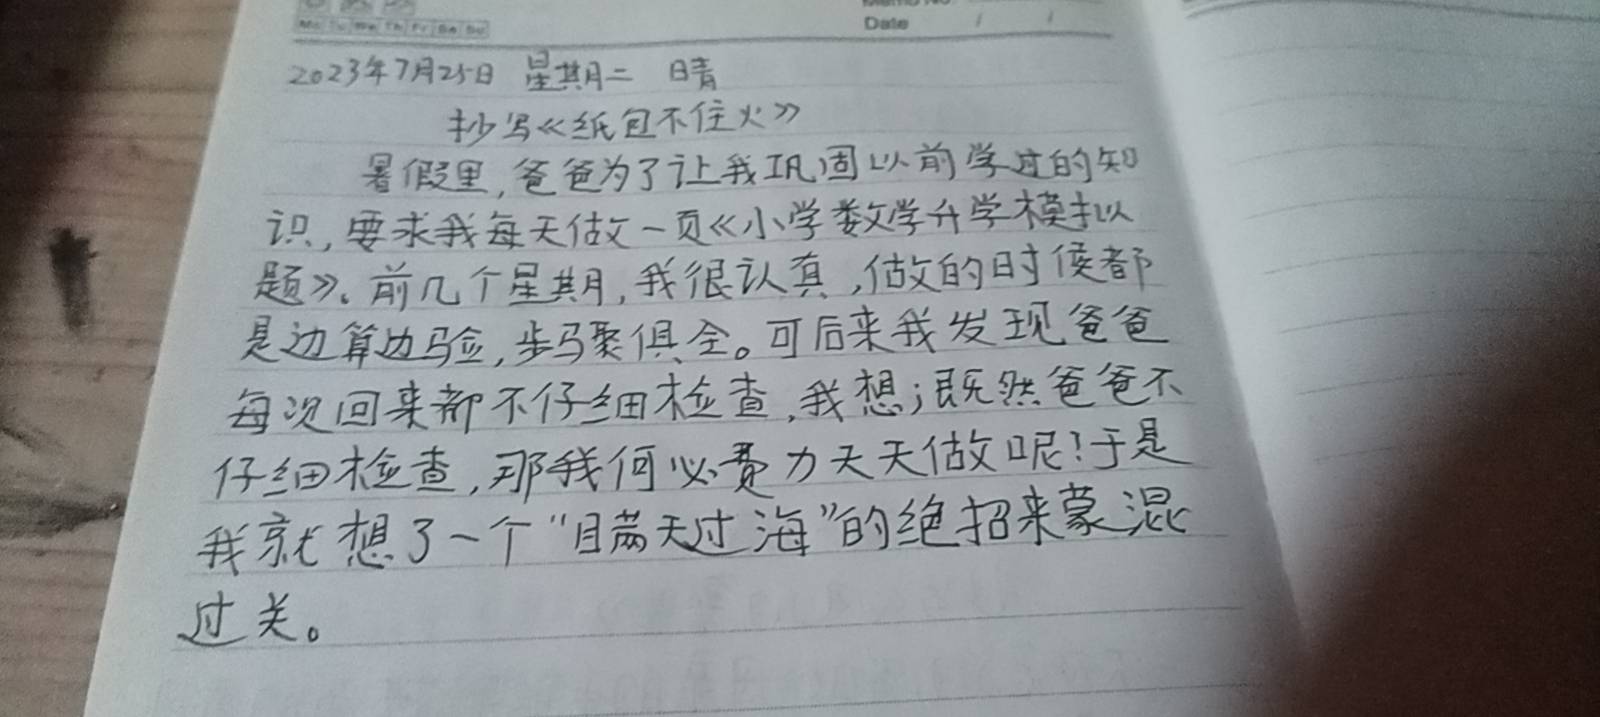 Mo Tu We Th Fr Sa Su
Memo No.
Date / /
2023年7月25日 星期二 晴
抄写《纸包不住火》
暑假里,爸爸为了让我巩固以前学过的知
识,要求我每天做一页《小学数学升学模拟
题》。前几个星期,我很认真,做的时候都
是边算边验,步骤俱全。可后来我发现爸爸
每次回来都不仔细检查,我想;既然爸爸不
仔细检查,那我何必费力天天做呢!于是
我就想了一个“瞒天过海”的绝招来蒙混
过关。